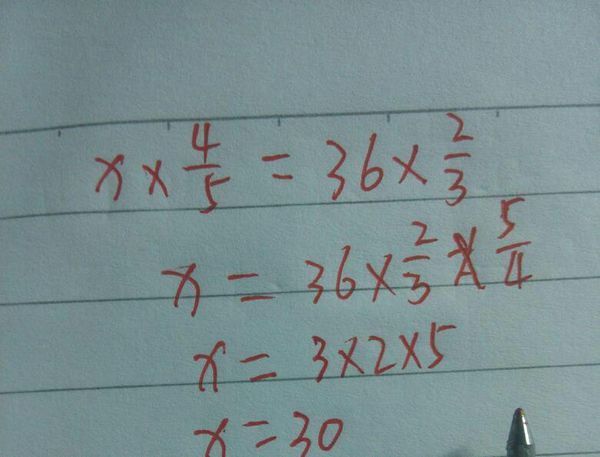 x × 4/5 = 36 × 2/3
x = 36 × 2/3 × 5/4
x = 3×2×5
x = 30